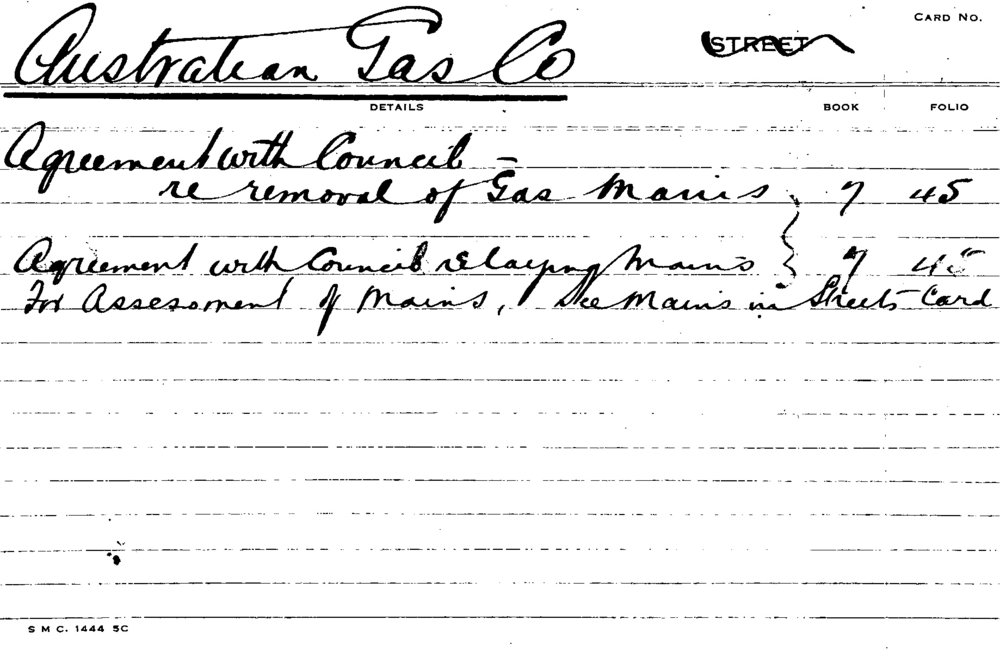 CARD NO.
Australian Gas Co STREET
DETAILS BOOK FOLIO
Agreement with Council –
re removal of Gas Mains } 7 45
Agreement with Council relaying Mains } 7 45
For Assessment of Mains, See Mains in Streets Card
S M C. 1444 5C